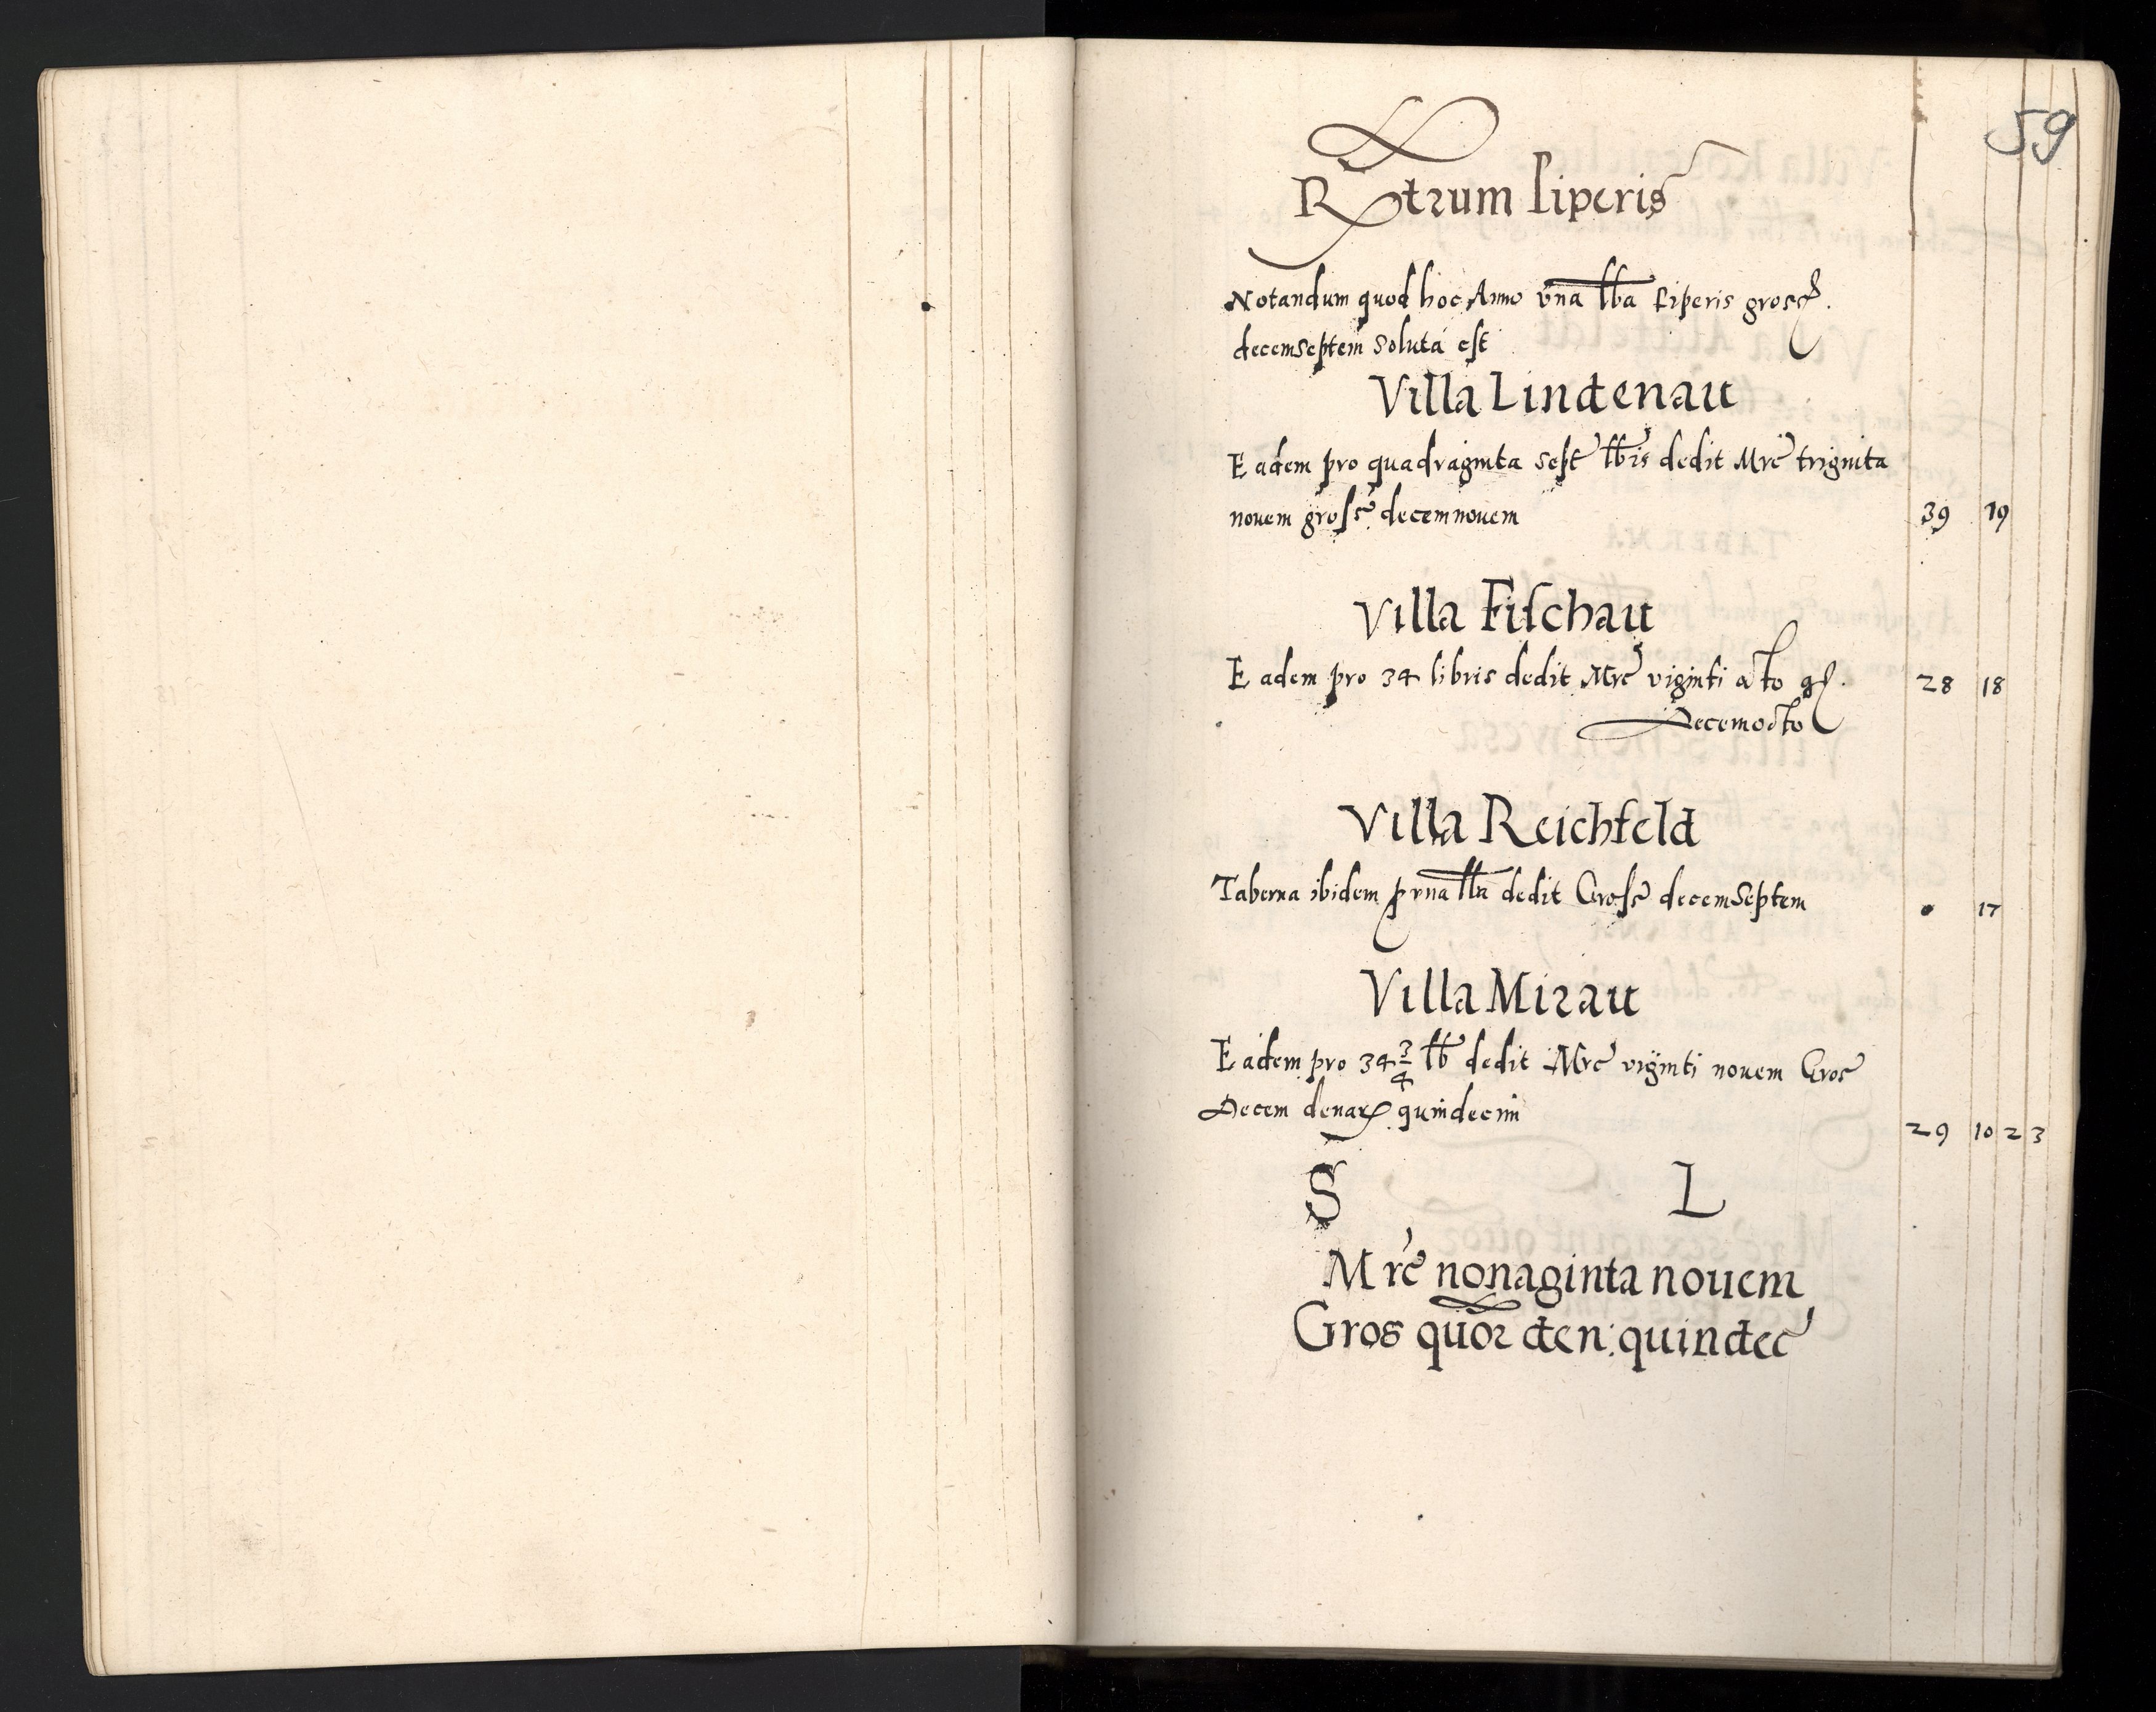 59
R trum Piperis
Notandum quod hoc Anno vna lba Piperis gross.
decemseptem soluta est
Villa Lindenau
Eadem pro quadraginta sept lbis dedit Mrc triginta
nouem gross decemnouem 39 19
Villa Fischau
Eadem pro 34 libris dedit Mrc viginti octo g. 28 18
Decemocto
Villa Reichfeld
Taberna ibidem p vna lba dedit Gross decemseptem • 17
Villa Mirau
Eadem pro 34 3/4 lb dedit Mrc viginti nouem Gros
Decem denar quindecim 29 10 2 3
S L
Mrc nonaginta nouem
Gros quor den: quindec